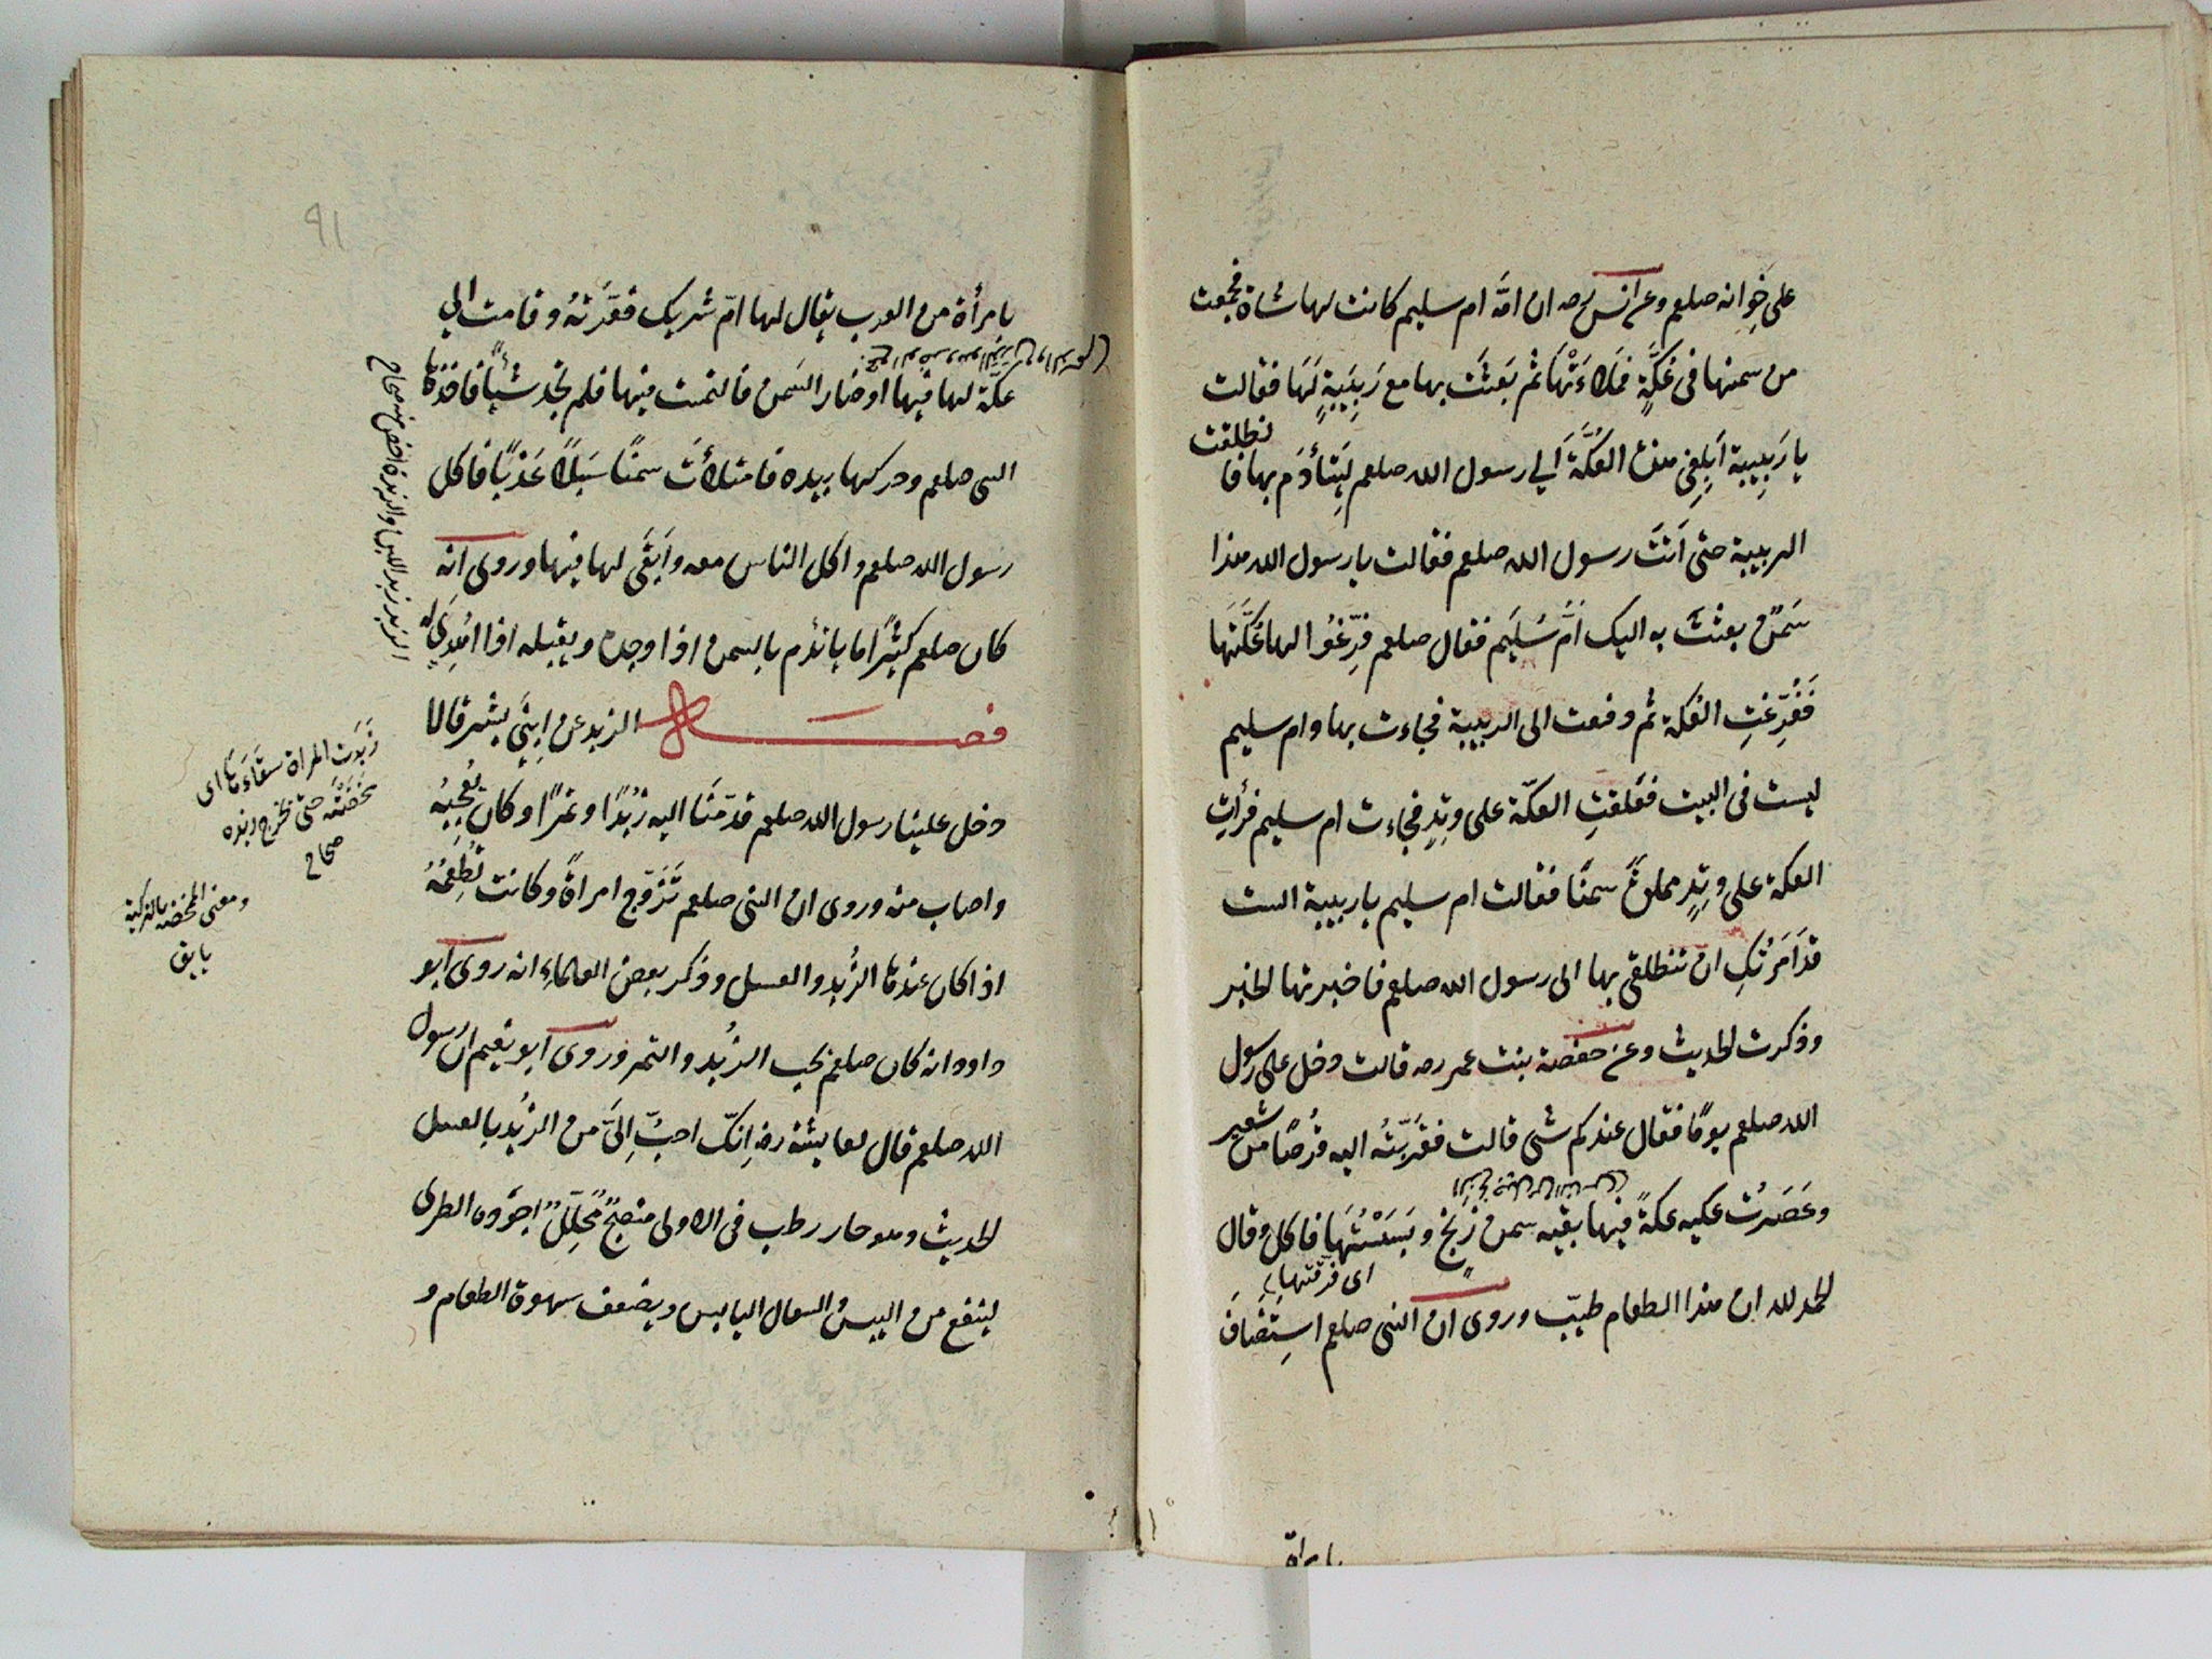 على خوانه صلعم وعن انس رضه ان امّه ام سليم كانت لها شاة فجمعت
من سمنها فى عُكَّةٍ فملاءَتْهَا ثم بَعثَت بها مع رَبِيبَةٍ لَهَا فقالت
يا رَبِيبة اَبلِغى هذه العُكَّةَ الي رسول الله صلعم لِيَتأدَم بها فا نطلقت
الربيبة حتى اَتَتْ رسول الله صلعم فقالت يا رسول الله هذا
سَمنٌ بعثتْ به اليك اُمُّ سُلَيم فقال صلعم فرِّغُوا لها عُكَّتَهَا
فَفُرِّغتِ العُكة ثم دفعت الى الربيبة فجاءت بها وام سليم
ليست فى البيت فعَلقتِ العكّة على وتِدٍ فجاءت ام سليم فرأتِ
العكة على وتِدٍ مملوةً سمنًا فقالت ام سليم يا ربيبة الست
قد اَمَرتُكِ ان تنطلقى بها الى رسول الله صلعم فاخبرتها الخبر
وذكرت الحديث وعن حفصة بنت عمر رضه قالت دخل علي رسول
الله صلعم يومًا فقال عندكم شئ قالت فقرّبتُ اليه قُرصًا من شعير
وعَصَرتُ عليه عكةً فيها بقيه سمن زَنِخ وبَسَسْتُهَا فاكل وقال
اى فرقتها
الحمد لله ان هذا الطعام طيّب وروى ان النبى صلعم استضافَ
يا مراة
٩١
يا مرأة من العرب يقال لها امّ شريك فقرّبتهُ وقامت الي
عكّة لها فيها اوضار السَمن فالتمست فيها فلم تجد شيًا فاخذها
النبى صلعم وحركها بيده فامتلأت سمنًا سَبَلاً عَذبًا فاكل
رسول الله صلعم واكل الناس معه وابقَى لها فيها وروى انه
كان صلعم كثيرًا ما يأتدم بالسمن اذا وجده ويقبله اذا اُهدِىَ له
فصل الزبد عن ابنَى بشر قالا
دخل علينا رسول الله صلعم قدّمنَا اليه زُبْدًا وتمرًا وكان يُعجبُه
واصاب منه وروى ان النبى صلعم تَزَوّج امراةً وكانت تُطعِمُهُ
اذا كان عندها الزُبد والعسل وذكر بعض العلماءِ انه روى ابو
داود انه كان صلعم يحب الزُبد والتمر وروى ابو نعيم ان رسول
الله صلعم قال لعايشة رضه اِنكّ احبُّ اِلىَّ من الزُبد بالعسل
الحديث وهو حار رطب فى الاولى منضجٌ مُحلِّلٌ اجوده الطرى
لينفع من اليبس والسعال اليابس ويضعف سهوة الطعام و
الزبد زبد اللبن والزبدة اخص منه صحاح
زَبَدت المراة سقاءَها اى
مخضته حتى تخرج زبده
صحاح
ومعنى المخضه بالتركية
يايق